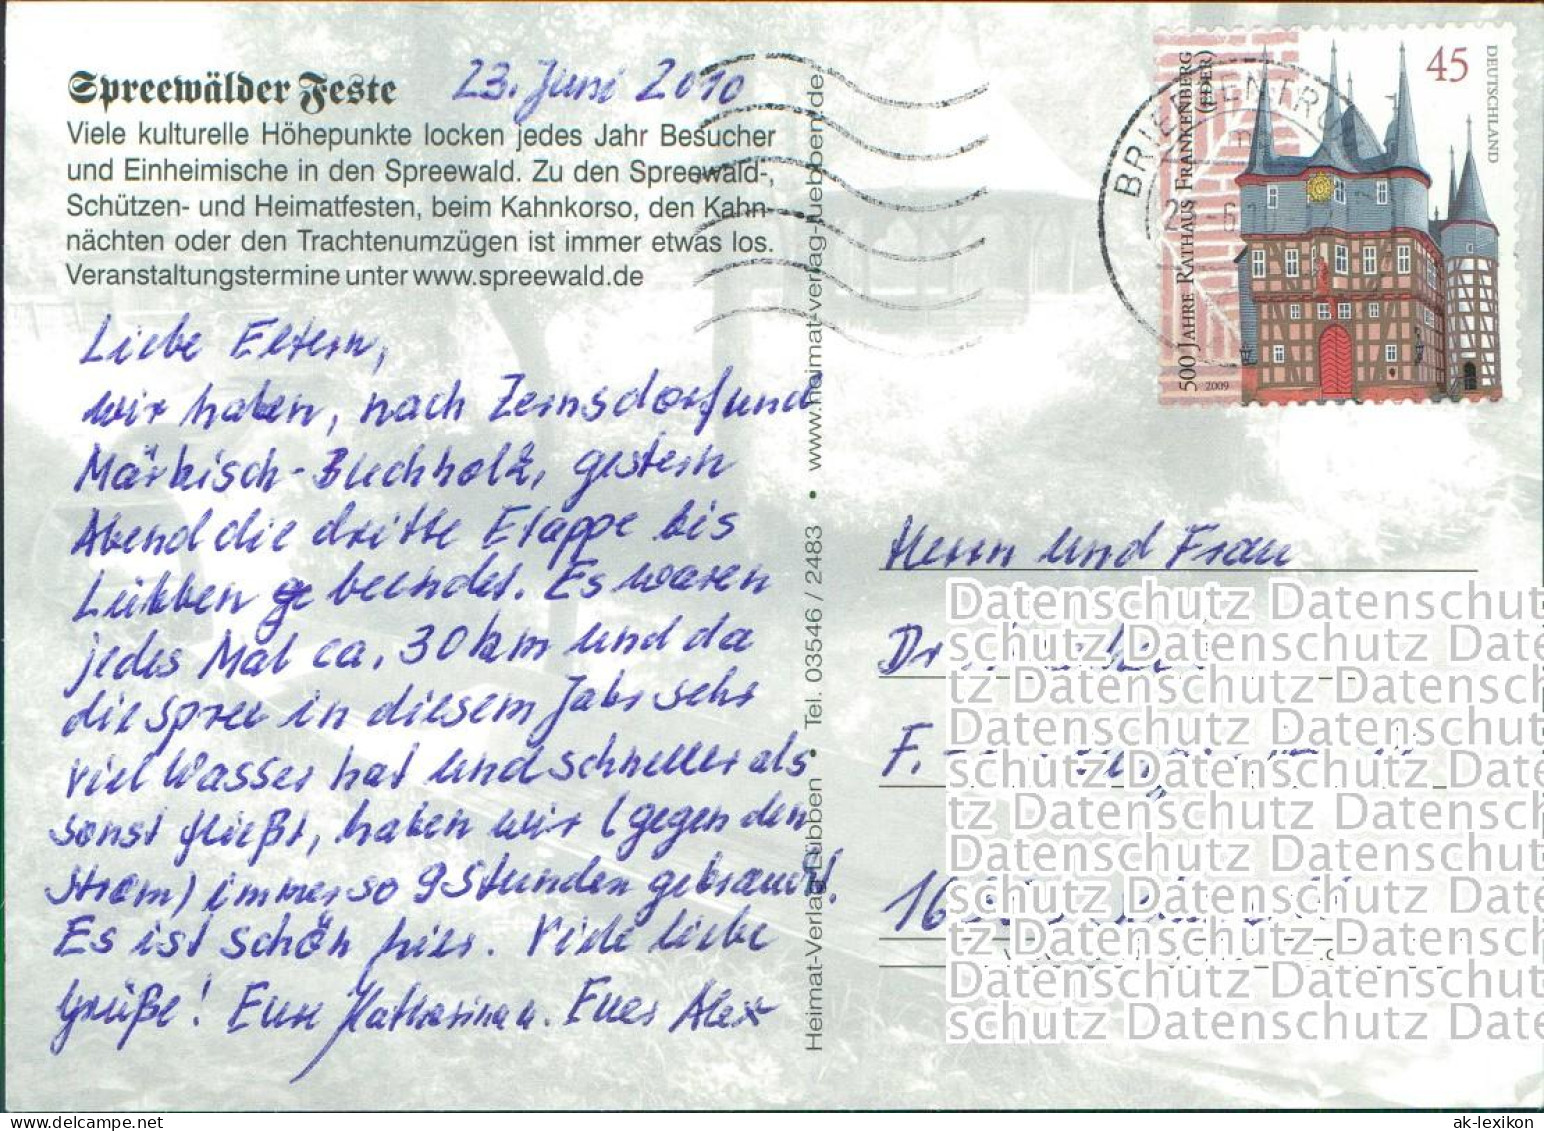 Spreewälder Feste
23. Juni 2010
Viele kulturelle Höhepunkte locken jedes Jahr Besucher
und Einheimische in den Spreewald. Zu den Spreewald-,
Schützen- und Heimatfesten, beim Kahnkorso, den Kahn-
nächten oder den Trachtenumzügen ist immer etwas los.
Veranstaltungstermine unter www.spreewald.de
Liebe Eltern,
wir haben, nach Zernsdorf und
Märkisch-Buchholz, gestern
Abend die dritte Etappe bis
Lübben beendet. Es waren
jedes Mal ca. 30 km und da
die Spree in diesem Jahr sehr
viel Wasser hat und schneller als
sonst fließt, haben wir (gegen den
Strom) immer so 9 Stunden gebraucht!
Es ist schön hier. Viele liebe
Grüße! Eure Katharina u. Euer Alex
Heimat-Verlag Lübben • Tel. 03546 / 2483 • www.heimat-verlag-luebben.de
500 JAHRE RATHAUS FRANKENBERG
(EDER)
2009
45
DEUTSCHLAND
BRIEFZENTRUM
Herrn und Frau
Dr
F.
16
Datenschutz Datenschutz
schutz Datenschutz Date
tz Datenschutz Datensch
Datenschutz Datenschutz
schutz Datenschutz Date
tz Datenschutz Datensch
Datenschutz Datenschutz
schutz Datenschutz Date
tz Datenschutz Datensch
Datenschutz Datenschutz
schutz Datenschutz Date
ak-lexikon.de